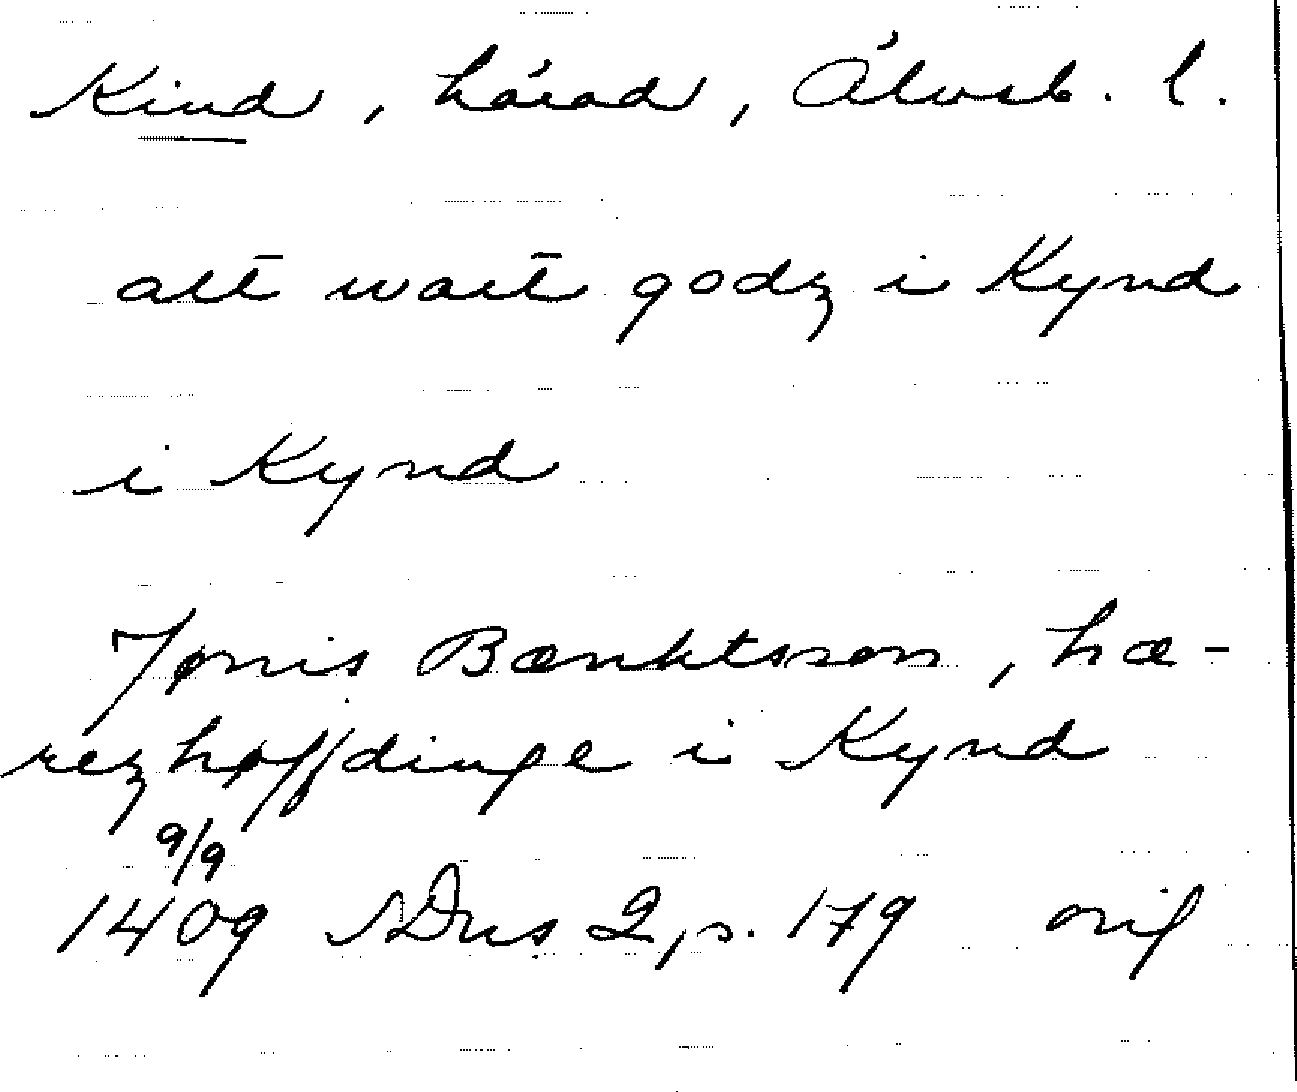 Kind, härad, Älvsb. l.
alt̄ wart̄ godz i Kynd
i Kynd
Jønis Bænktsson, hæ-
rezhøffdinge i Kynd
9/9
1409 SDns 2, s. 179 orig